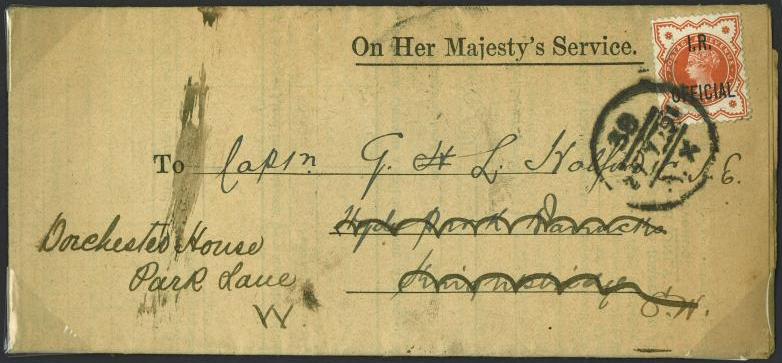 On Her Majesty's Service.
I.R.
OFFICIAL
To Captn. G. H. L. Holford C.I.E.
Hyde Park Barracks
Knightsbridge
S.W.
Dorchester House
Park Lane
W